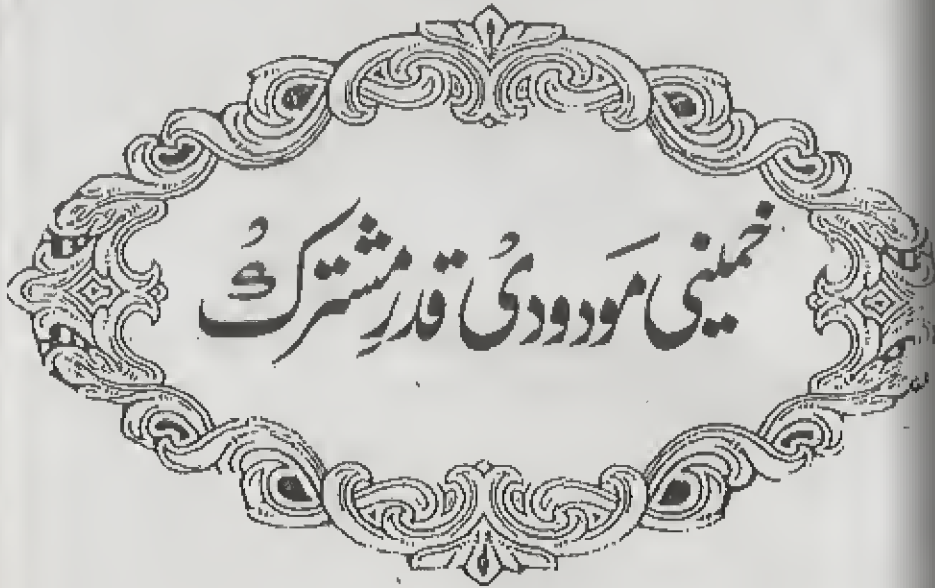 خمینی مودودی قدرِ مشترک